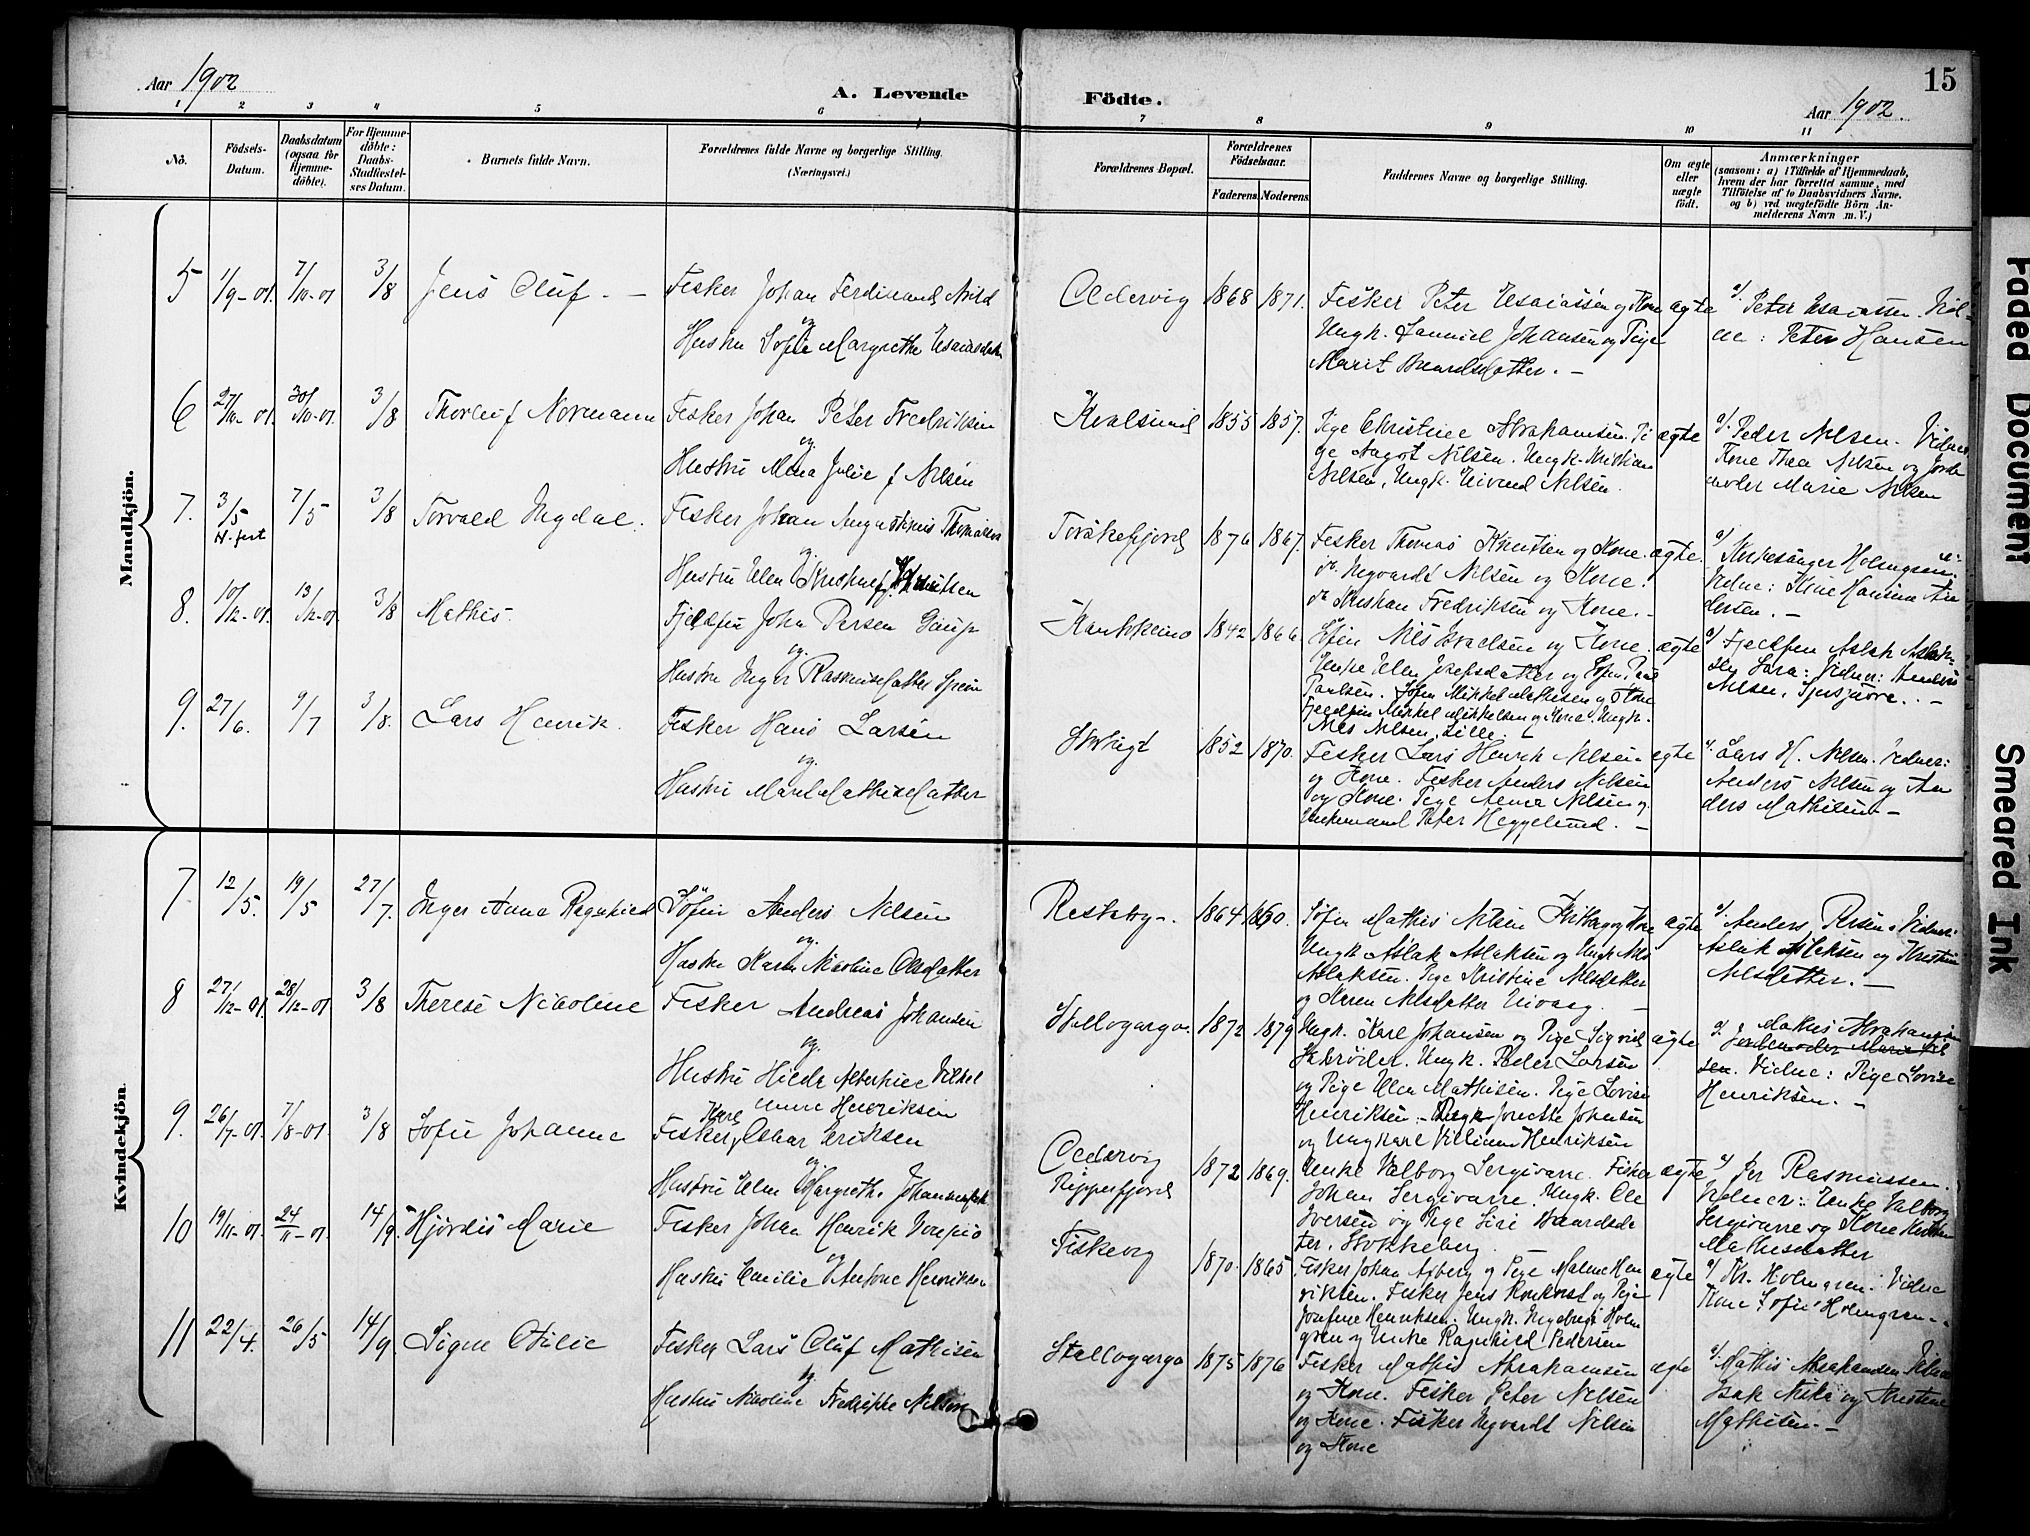 Aar 1902
A. Levende
Födte.
Aar 1902.
15
1 2 3 4 5 6 7 8 9 10 11
No.
Födsels-
Datum.
Daabsdatum
(ogsaa for
Hjemme-
döbte).
For Hjemme-
döbte:
Daabs-
Stadfæstel-
ses Datum.
Barnets fulde Navn.
Forældrenes fulde Navne og borgerlige Stilling.
(Næringsvei.)
Forældrenes Bopæl.
Forældrenes
Födselsaar.
Faderens. Moderens.
Faddernes Navne og borgerlige Stilling.
Om ægte
eller
uægte
födt.
Anmærkninger
(saasom: a) i Tilfælde af Hjemmedaab,
hvem der har forrettet samme, med
Tilföielse af to Daabsvidners Navne.
og b) ved uægtefödte Börn An-
melderens Navn m. V.)
Mandkjön.
5 1/9-01. 7/10-01 3/8 Jens Oluf. —
Fisker Johan Ferdinand
og
Hustru Sofie Margrethe Esaiasdatter
Oldervig 1868 1871.
Fisker Peter Esaiassen og Kone
Ungk. Samuel Johansen og Pige
Marit Baardsdatter. —
ægte
a/. Peter Esaiassen. Vid-
ne: Peter Hansen
6 27/10-01. 30/10-01. 3/8 Thorleif Normann
Fisker Johan Peter Fredriksen
og
Hustru Mina Julie f Nilsen
Kvalsund 1855 1857.
Pige Christine Abrahamsen. Pi
ge Aagot Nilsen. Ungk. Kristian
Nilsen, Ungk. Eivind Nilsen.
ægte
a/. Peder Nilsen. Vidner
Kone Thea Nilsen og Jorde
moder Marie Nilsen
7. 3/5 7/5 3/8 Torvald Ingdal.
Fisker Johan Augustinus Thomassen
og
Hustru Elen Knutsen
Torskefjord 1876 1867.
Fisker Thomas Knutsen og Kone.
do. Ingvardt Nilsen og Kone.
do Kristian Fredriksen og Kone. —
ægte.
a/ Kirkesanger Holmgren.
Vidne: Kine Hansine An
dersen. —
8. 10/12-01. 13/12-01. 3/8 Mathis.
Fjeldfin John Persen Gaup
og
Hustru Inger Rasmusdatter Spein
Kautokeino 1842 1866
Söfin Nils Isvaelsen og Kone.
Enke Elen Josefsdatter og Söfin Paul
Paulsen. Söfin Mikkel Mathisen og Kone
Fjeldfin Mikkel Mikkelsen og Kone. Ungk.
Nils Nilsen, Lille.
ægte
a/ Fjeldfin Aslak Aslak-
sen Sara: Vidner: Anders
Nilsen, —
9. 27/6. 9/7 3/8. Lars Henrik.
Fisker Hans Larsen
og
Hustru Marit Mathisdatter
1852 1870.
Fisker Lars Henrik Nilsen
og Kone. Fisker Anders Nilsen
og Kone. Pige Anna Nilsen og
Enkemand Peter Heggelund. —
ægte
a/. Lars H. Nilsen. Vidner:
Anders Nilsen og An
ders Mathisen —
Kvindekjön.
7 12/5. 19/5 27/7. Inger Anna Ragnhild
Söfin Anders Nilsen
og
Hustru Karen Nicoline Olsdatter
Restaby. 1864 1860.
Söfin Mathis Nilsen og Kone
Ungk Aslak Aslaksen og Ungk Nils
Aslaksen. Pige Kristine Nilsdatter
og Karen Nilsdatter
ægte
a/. Anders Vidner.
Aslak Aslaksen og Kristine
Nilsdatter. —
8 27/12-01. 28/12-01 3/8 Therese Nicoline
Fisker Andreas Johansen
og
Hustru Hilda
mine Henriksen
Stallogargo. 1872 1879
Ungk. Karl Johansen og Pige Sigrid
Ungk. Peder Larsen
og Pige Elen Mathisen. Pige Lovise
Henriksen. Jonette Johansen
og Ungkarl Villiam Henriksen
ægte
a/. Mathis Abrahamsen
Jordemoder Marie Nil
sen. Vidne: Pige Lovise
Henriksen. —
9. 26/7-01. 7/8-01. 3/8 Sofie Johanne
Karl
Fisker Oskar Eriksen
og
Hustru Elen Margrethe
Oldervig
Ripperfjord
1872 1869.
Enke Valborg Sergivarre. Fisker
Johan Sergivarre. Ungk. Ole
Iversen og Pige Siri Baardsdat
ter, Stokkeberg.
ægte
a/ Per Rasmussen.
Vidner: Enke Valborg
Sergivarre og Kone
Mathisdatter
10 19/11-01. 24/11-01. 14/9. Hjördis Marie
Fisker Johan Henrik
og
Hustru Emilie Antone Henriksen
Fiskevig 1870. 1865
Fisker Johan og Pige Malene Hen
riksen. Fisker Jens og Pige
Josefine Henriksen. Ungk. Ingebrigt Holm
gren og Enke Ragnhild Pedersen
ægte
a/ Kr. Holmgren. Vidne
Kone Sofie Holmgren. -
11 22/4. 26/5 14/9 Signe Otilie
Fisker Lars Oluf Mathisen
og
Hustru Nicoline Fredrikke Nilsen
Stallogargo 1875 1876
Fisker Mathis Abrahamsen
og Kone. Fisker Peter Nilsen
og Kone. Fisker Ingvardt Nilsen
og Kone
ægte
a/. Mathis Abrahamsen Vidner
Isak og Kristine
Mathisen. —
Faded Document
Smeared Ink